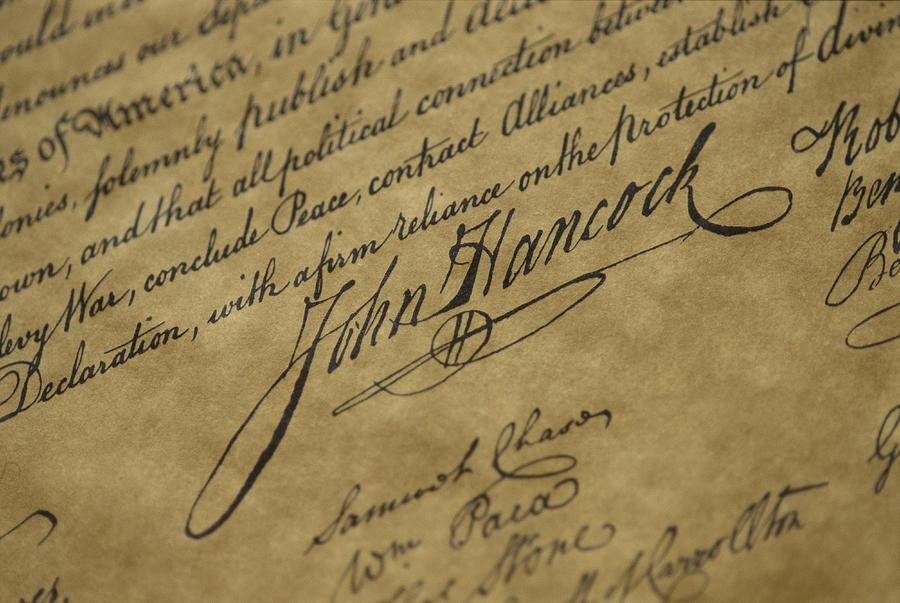 ould
denounces our Separ
rs of America, in Gene
lonies, solemnly publish and decla
own, and that all political connection between
levy War, conclude Peace, contract Alliances, establish
Declaration, with a firm reliance on the protection of divin
John Hancock
Rob
Ben
Be
Samuel Chase
Wm Paca
Stone
Carrollton
G